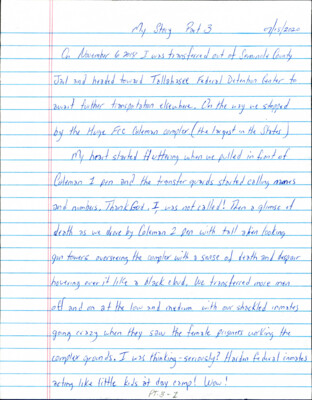 My Story Part 3
On November 6 2018 I was transferred out of Seminole County
Jail and headed toward Tallahassee Federal Detention Center to
await further transportation elsewhere. On the way we stopped
by the Huge FCC Coleman complex (the largest in the States.)
My heart started fluttering when we pulled in front of
Coleman 1 pen and the transfer guards started calling names
and numbers. Thank God, I was not called! Then a glimpse of
death as we drove by Coleman 2 pen with tall alien looking
gun towers overseeing the complex with a sense of death and despair
hovering over it like a black cloud. We transferred more men
off and on at the low and medium with our shackled inmates
going crazy when they saw the female prisoners working the
complex grounds. I was thinking - seriously? Harden Federal inmates
acting like little kids at day camp! Wow!
PT. 3-1